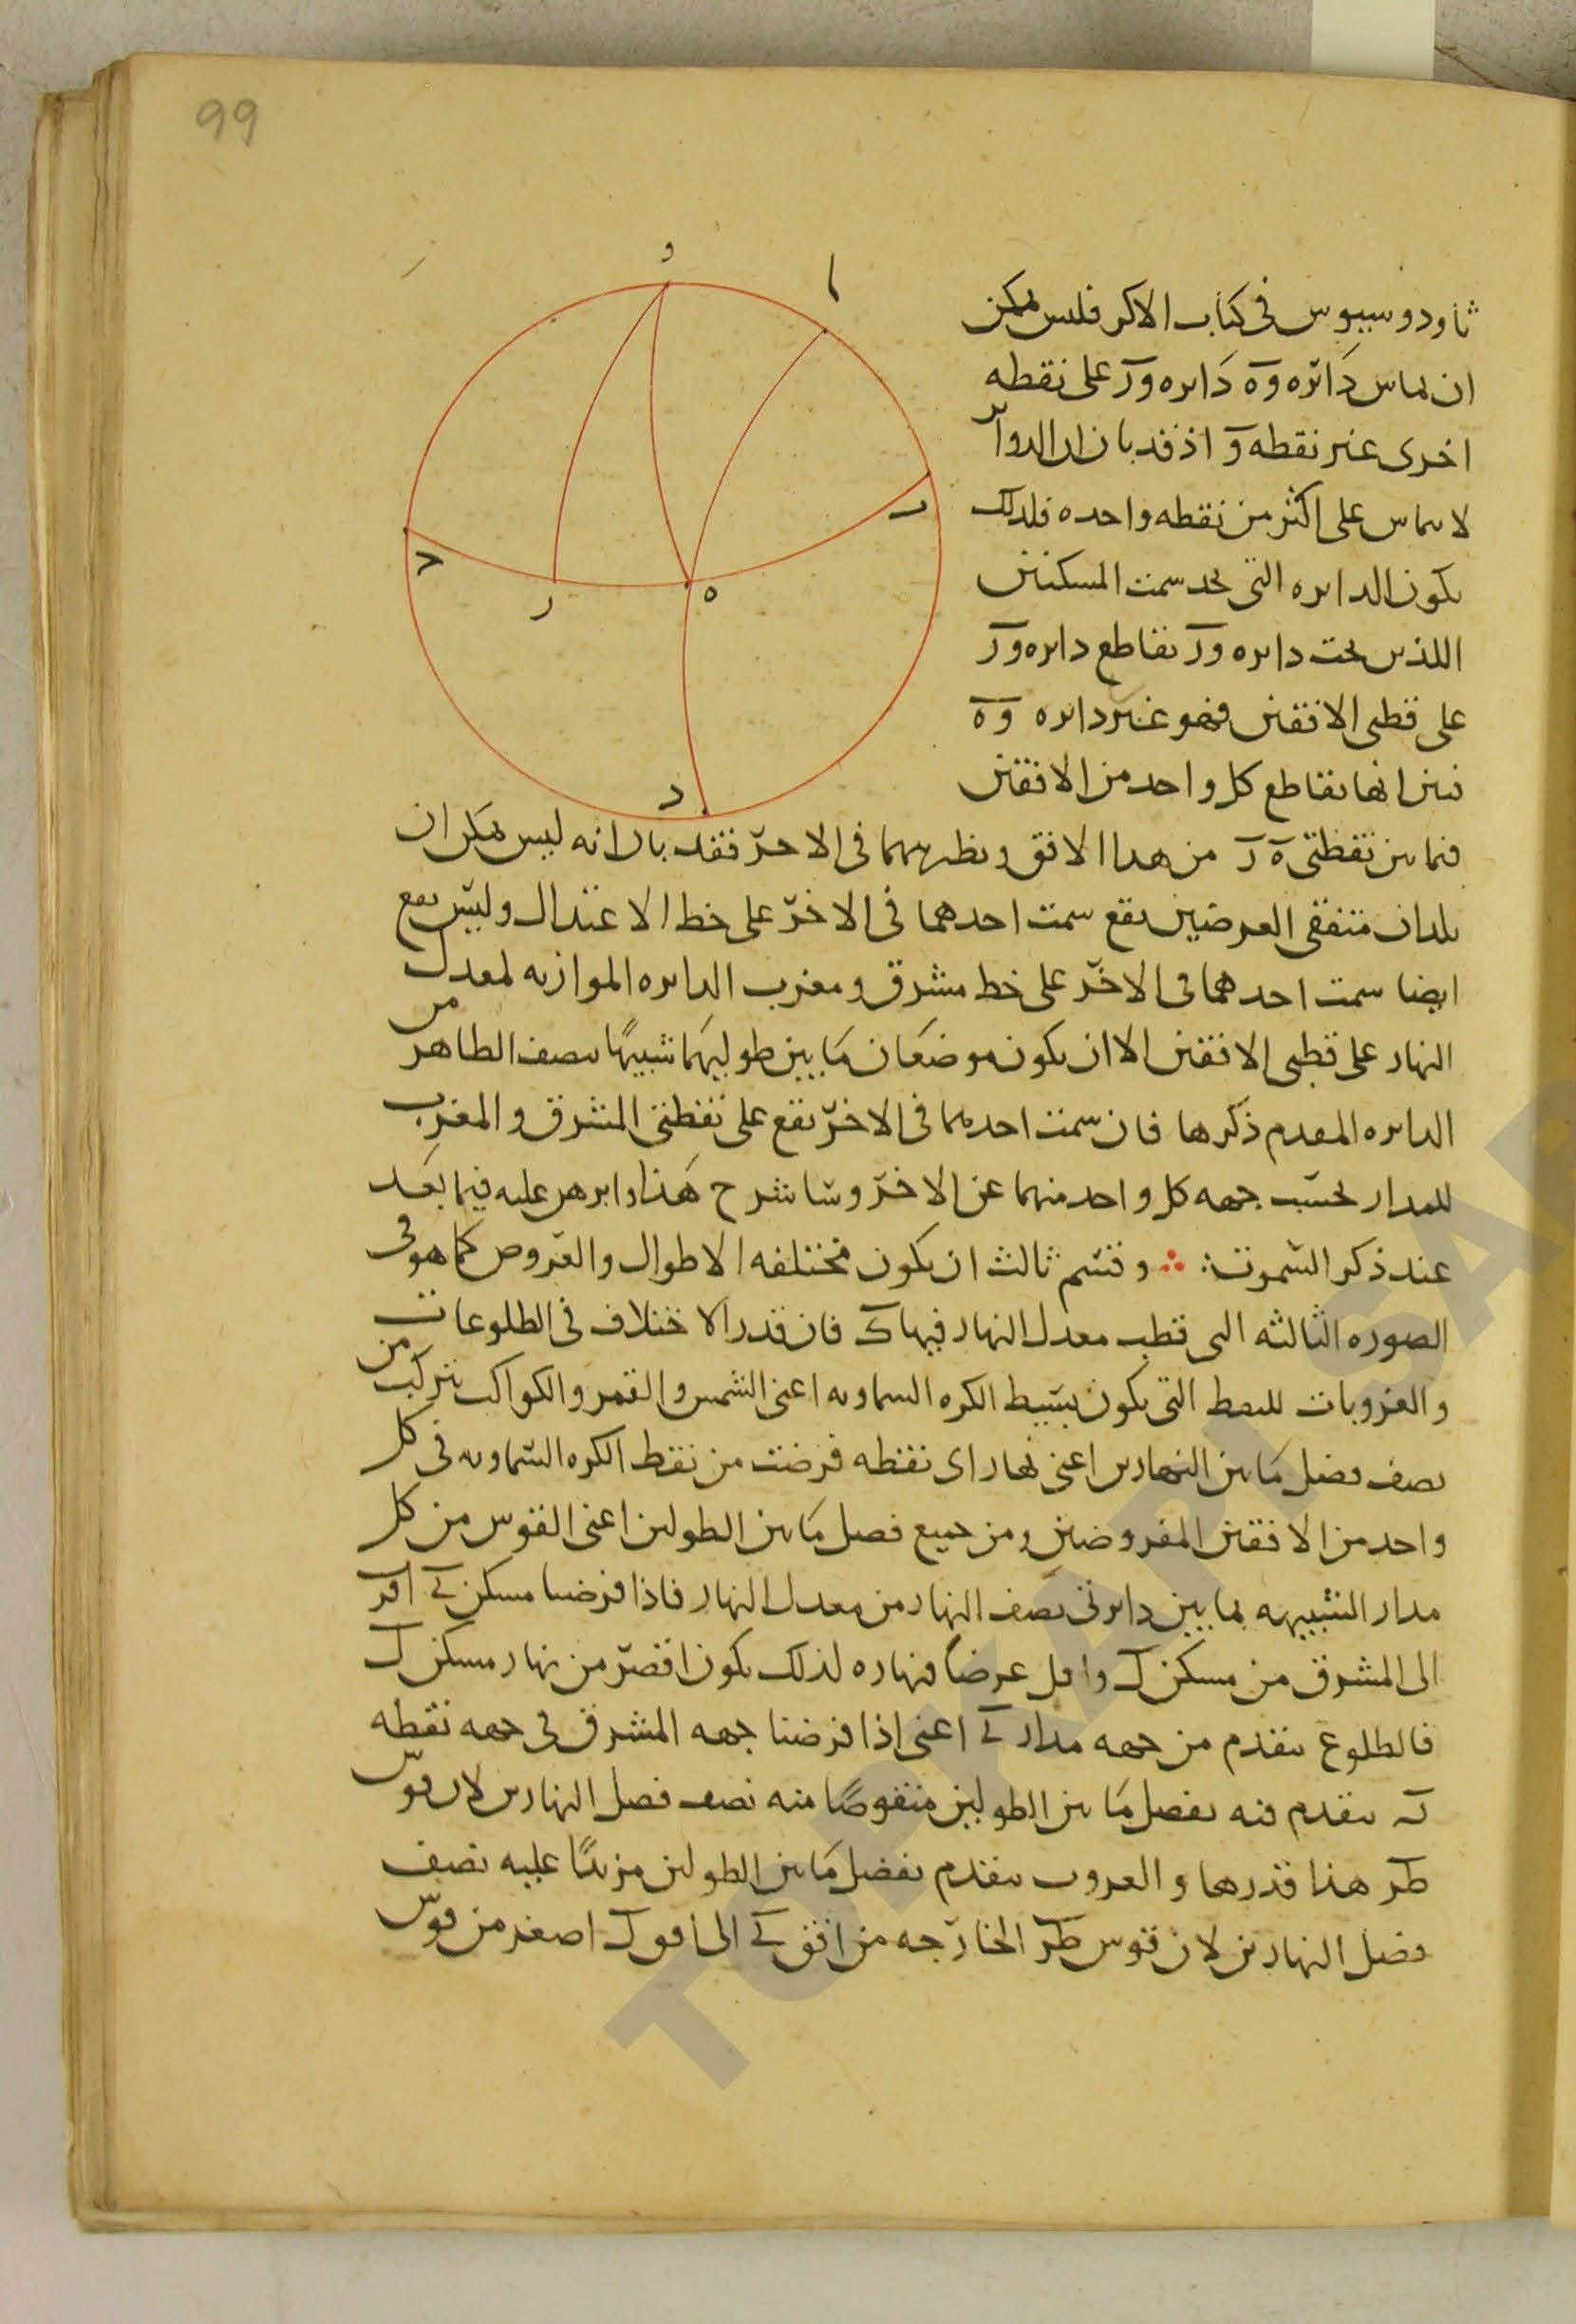 99
و
ا
ب
ح
ر
ه
د
ثاودوسيوس فى كتاب الاكر فليس يمكن
ان يماس دائره وه دايره ور على نقطه
اخرى غير نقطه و اذ قد بان ان الدوائر
لا يماس على اكثر من نقطه واحده فلذلك
يكون الدايره التى تحد سمت المسكنين
اللذين تحت دايره ور يقاطع دايره ور
على قطبى الافقين فهو غير دايره وه
فبين انها يقاطع كل واحد من الافقين
فيما بين نقطتى ه ر من هذا الافق ونظيرهما فى الاخر فقد بان انه ليس يمكن ان
بلدان متفقى العرضين يقع سمت احدهما فى الاخر على خط الاعتدال وليس يقع
ايضا سمت احدهما فى الاخر على خط مشرق ومغرب الدايره الموازيه لمعدل
النهار على قطبى الافقين الا ان يكون موضعان ما بين طوليهما شبيها بنصف الظاهر من
الدايره المقدم ذكرها فان سمت احدهما فى الاخر يقع على نقطتى المشرق والمغرب
للمدار بحسب جهه كل واحد منهما عن الاخر وساشرح هذا وابرهن عليه فيما بعد
عند ذكر السموت ∴ وقسم ثالث ان يكون مختلفه الاطوال والعروض كما هو فى
الصوره الثالثه التى قطب معدل النهار فيها ك فان قدر الاختلاف فى الطلوعات
والغروبات للنقط التى يكون ببسيط الكره السماويه اعنى الشمس والقمر والكواكب يتركب من
نصف فضل ما بين النهارين اعنى نهار اى نقطه فرضت من نقط الكره السماويه فى كل
واحد من الافقين المفروضين ومن جميع فضل ما بين الطولين اعنى القوس من كل
مدار الشبيهه بما بين دايرتى نصف النهار من معدل النهار فاذا فرضنا مسكن ى اقرب
الى المشرق من مسكن ل واقل عرضا فنهاره لذلك يكون اقصر من نهار مسكن ل
فالطلوع يتقدم من جهه مدار ى اعنى اذا فرضنا جهه المشرق فى جهه نقطه
يتقدم فيه بفضل ما بين الطولين منقوصا منه نصف فضل النهارين لان قوس
طر هذا قدرها والغروب يتقدم بفضل ما بين الطولين مزيدا عليه نصف
فضل النهارين لان قوس طر الخارجه من افق ى الى افق ل اصغر من قوس